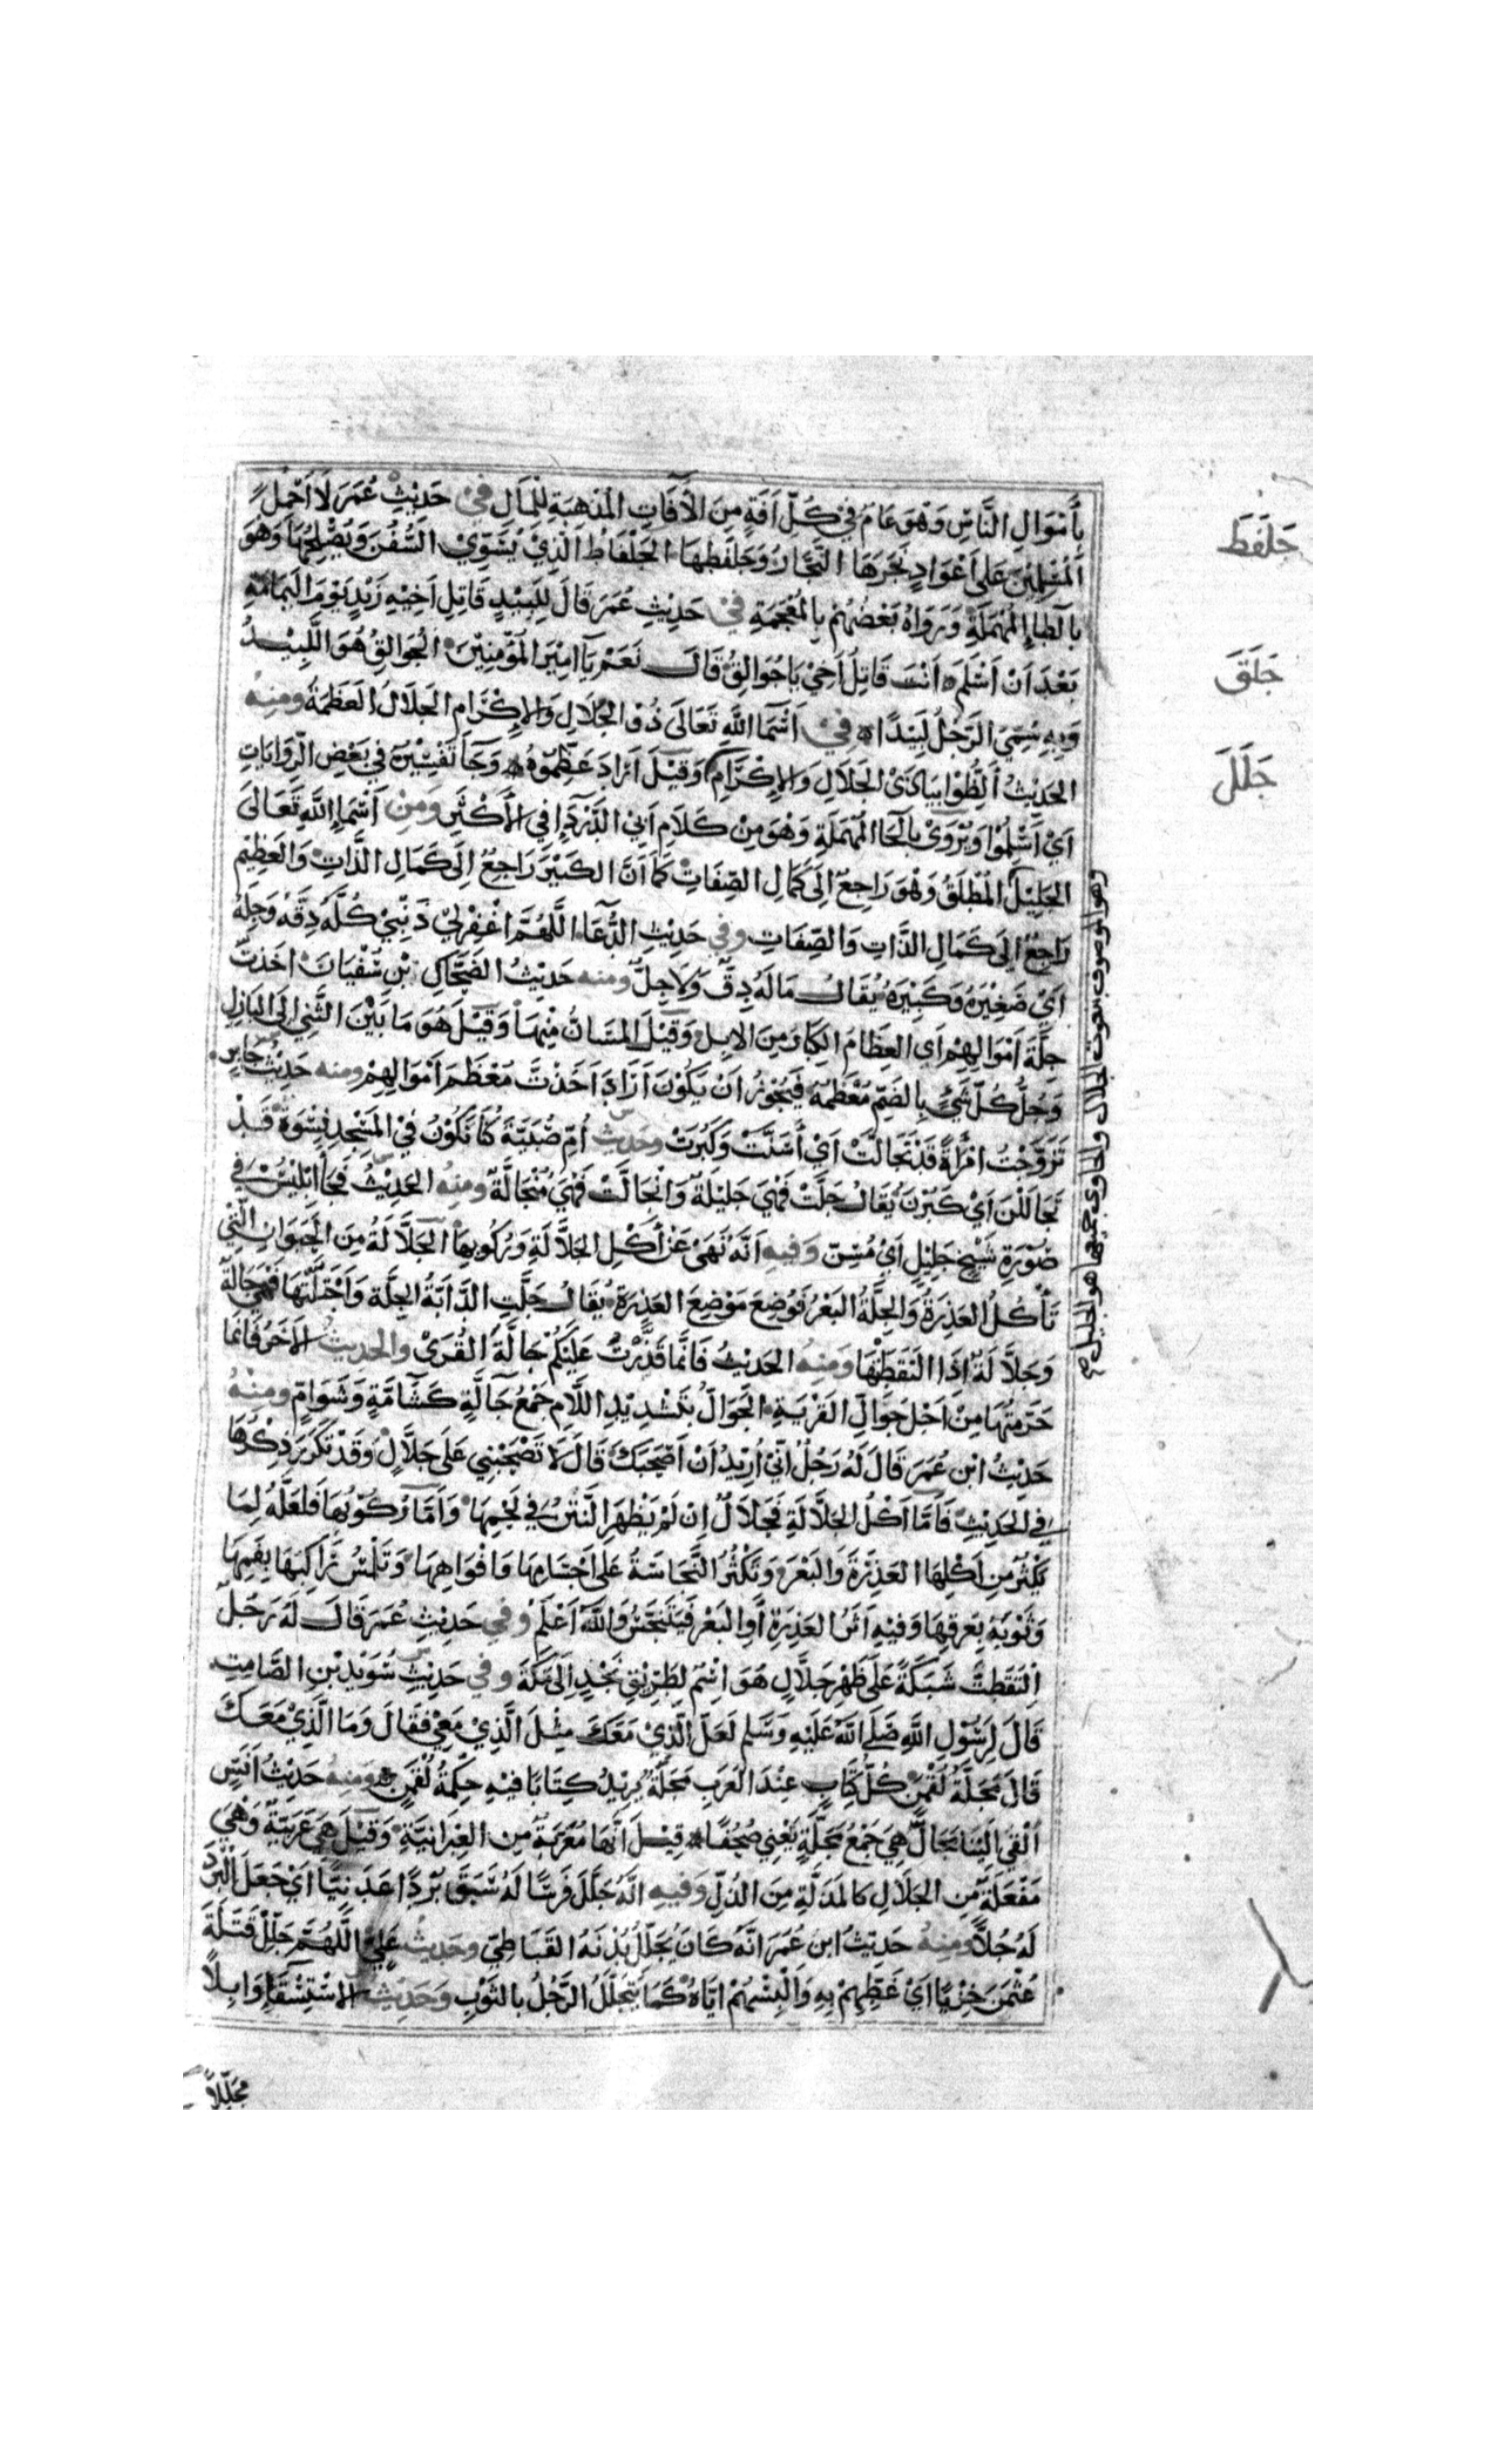 بِأَمْوَالِ النَّاسِ وَهُوَ عَامٌ فِي كُلِّ اَفَةٍ مِنَ الْأَفَاتِ الْمُذْهِبَةِ لِلْمَالِ في حَدِيْثِ عُمَرَ لَا اَحْمِلُ
جَلْفَطَ
الْمُسْلِمِيْنَ عَلَى اَعْوَادٍ نَجَرَهَا النَّجَّارُ وَجَلْفَطَهَا الْجِلْفَاطُ الَّذِيْ يُسَوِّيْ السُّفُنَ وَيُصْلِحُهَا وَهُوَ
بِالطَّاءِ الْمُهْمَلَةِ وَرَوَاهُ بَعْضُهُمْ بِالْمُعْجَمَةِ في حَدِيْثِ عُمَرَ قَالَ لِلَبِيْدٍ قَاتِلِ اَخِيْهِ زَيْدٍ يَوْمَ الْيَمَامَةِ
جَلَقَ
بَعْدَ اَنْ اَسْلَمَ اَنْتَ قَاتِلُ اَخِيْ يَا جُوَالِقُ قَالَ نَعَمْ يَا اَمِيْرَ الْمُؤْمِنِيْنَ الْجُوَالِقُ هُوَ اللَّبِيْدُ
وَبِهِ سُمِّيَ الرَّجُلُ لَبِيْدًا في اَسْمَا اللَّهِ تَعَالَى ذُو الْجَلَالِ وَالْاِكْرَامِ الْجَلَالُ الْعَظَمَةُ وَمِنْهُ
جَلَلَ
الْحَدِيْثُ اَلِظُّوْا بِيَاذَيْ الْجَلَالِ وَالْاِكْرَامِ وَقِيْلَ اَرَادَ عَظِّمُوْهُ وَجَا تَفْسِيْرُهُ فِي بَعْضِ الرِّوَايَاتِ
اَيْ اَسْلِمُوْا وَيُرْوَى بِالْحَا الْمُهْمَلَةِ وَهُوَ مِنْ كَلَامِ اَبِي الدَّرْدَاءِ فِي الْأَكْثَرِ وَمِنْ اَسْمَاءِ اللَّهِ تَعَالَى
الْجَلِيْلُ الْمُطْلَقُ وَهُوَ رَاجِعٌ اِلَى كَمَالِ الصِّفَاتِ كَمَا اَنَّ الْكَبِيْرَ رَاجِعٌ اِلَى كَمَالِ الذَّاتِ وَالْعَظِيْمَ
وهو الموصوف بنعوت الجلال والحاوى جميعها هو الجليل صح
رَاجِعٌ اِلَى كَمَالِ الذَّاتِ وَالصِّفَاتِ وَفِي حَدِيْثِ الدُّعَا اللَّهُمَّ اغْفِرْ لِيْ ذَنْبِيْ كُلَّهُ دِقَّهُ وَجِلَّهُ
اَيْ صَغِيْرَهُ وَكَبِيْرَهُ يُقَالُ مَالَهُ دِقٌّ وَلَا جِلٌّ ومنه حَدِيْثُ الضَّحَّاكِ بْنِ سُفْيَانَ اَخَذْتَ
جِلَّةَ اَمْوَالِهِمْ اَيِ الْعِظَامَ الْكِبَارَ مِنَ الْاِبِلِ وَقِيْلَ الْمَسَانُّ مِنْهَا وَقِيْلَ هُوَ مَا بَيْنَ الثَّنِي اِلَى الْبَازِلِ
وَجُلُّ كُلِّ شَيْءٍ بِالضَّمِّ مُعْظَمُهُ فَيَجُوْزُ اَنْ يَكُوْنَ اَرَادَ اَخَذْتَ مُعْظَمَ اَمْوَالِهِمْ ومنه حَدِيْثُ جَابِرٍ
تَزَوَّجْتُ امْرَأَةً قَدْ تَجَالَّتْ اَيْ أَسَنَّتْ وَكَبُرَتْ وحديث أُمِّ صُبَيَّةَ كُنَّا نَكُوْنُ فِي الْمَسْجِدِ نِسْوَةٌ قَدْ
تَجَالَلْنَ اَيْ كَبُرْنَ يُقَالُ جَلَّتْ فَهِيَ جَلِيْلَةٌ وَتَجَالَّتْ فَهِيَ مُتَجَالَّةٌ وَمِنْهُ الْحَدِيْثُ فَجَا اِبْلِيْسُ فِي
صُوْرَةِ شَيْخٍ جَلِيْلٍ اَيْ مُسِنٍّ وَفِيهِ اَنَّهُ نَهَى عَنْ اَكْلِ الْجَلَّالَةِ وَرُكُوْبِهَا الْجَلَّالَةُ مِنَ الْحَيَوَانِ الَّتِي
تَأْكُلُ الْعَذِرَةَ وَالْجِلَّةُ الْبَعْرُ فَوُضِعَ مَوْضِعَ الْعَذِرَةِ يُقَالُ جَلَّتِ الدَّابَّةُ الْجِلَّةَ وَاجْتَلَّتْهَا فَهِيَ جَالَّةٌ
وَجَلَّالَةٌ اِذَا الْتَقَطَتْهَا وَمِنْهُ الْحَدِيْثُ فَاِنَّمَا قَذَّرْتُ عَلَيْكُمْ جَالَّةَ الْقُرَى وَالْحَدِيْثُ الْاَخَرُ فَاِنَّمَا
حَرَّمْتُهَا مِنْ اَجْلِ جَوَالِّ الْقَرْيَةِ الْجَوَالُّ بِتَشْدِيْدِ اللَّامِ جَمْعُ جَالَّةٍ كَسَامَّةٍ وَسَوَامٍّ وَمِنْهُ
حَدِيْثُ ابْنِ عُمَرَ قَالَ لَهُ رَجُلٌ اِنِّيْ اُرِيْدُ اَنْ اَصْحَبَكَ قَالَ لَا تَصْحَبْنِي عَلَى جَلَّالٍ وَقَدْ تَكَرَّرَ ذِكْرُهَا
فِي الْحَدِيْثِ فَاَمَّا اَكْلُ الْجَلَّالَةِ فَحَلَالٌ اِنْ لَمْ يَظْهَرِ النَّتْنُ فِي لَحْمِهَا وَاَمَّا رُكُوْبُهَا فَلَعَلَّهُ لِمَا
يَكْثُرُ مِنْ اَكْلِهَا الْعَذِرَةَ وَالْبَعْرَ وَتَكْثُرُ النَّجَاسَةُ عَلَى اَجْسَامِهَا وَاَفْوَاهِهَا وَتَلْمَسُ رَاكِبَهَا بِفَمِهَا
وَثَوْبَهُ بِعَرَقِهَا وَفِيْهِ اَثَرُ الْعَذِرَةِ أَوِ الْبَعْرِ فَيَتَنَجَّسُ وَاللَّهُ اَعْلَمُ وَفِي حَدِيْثِ عُمَرَ قَالَ لَهُ رَجُلٌ
اِلْتَقَطْتُ شَبَكَةً عَلَى ظَهْرِ جَلَّالٍ هُوَ اِسْمٌ لِطَرِيْقِ نَجْدٍ اِلَى مَكَّةَ وَفِي حَدِيْثِ سُوَيْدِ بْنِ الصَّامِتِ
قَالَ لِرَسُوْلِ اللَّهِ صَلَّى اللَّهُ عَلَيْهِ وَسَلَّم لَعَلَّ الَّذِيْ مَعَكَ مِثْلَ الَّذِيْ مَعِيْ فَقَالَ وَمَا الَّذِيْ مَعَكَ
قَالَ مَجَلَّةُ لُقْمٰنَ كُلُّ كِتَابٍ عِنْدَ الْعَرَبِ مَجَلَّةٌ يُرِيْدُ كِتَابًا فِيْهِ حِكْمَةُ لُقْمٰنَ وَمِنْهُ حَدِيْثُ اَنَسٍ
اُلْقِيَ اِلَيْنَا مَجَالٌّ هِيَ جَمْعُ مَجَلَّةٍ يَعْنِي صُحُفًا قِيْلَ اَنَّهَا مُعَرَّبَةٌ مِنَ الْعِبْرَانِيَّةِ وَقِيْلَ هِيَ عَرَبِيَّةٌ وَهِيَ
مَفْعَلَةٌ مِنَ الْجَلَالِ كَالْمَذَلَّةِ مِنَ الذُّلِّ وَفِيهِ اِنَّهُ جَلَّلَ فَرَسًا لَهُ سَبَقَ بُرْدًا عَدَنِيًّا اَيْ جَعَلَ الْبُرْدَ
لَهُ جُلًّا وَمِنْهُ حَدِيْثُ ابْنِ عُمَرَ اَنَّهُ كَانَ يُجَلِّلُ بُدْنَهُ الْقَبَاطِيَّ وَحَدِيْثُ عَلِيٍّ اللَّهُمَّ جَلِّلْ قَتَلَةَ
عُثْمٰنَ خِزْيًا اَيْ غَطِّهِمْ بِهِ وَاَلْبِسْهُمْ اِيَّاهُ كَمَا يَتَجَلَّلُ الرَّجُلُ بِالثَّوْبِ وَحَدِيْثُ الْاِسْتِسْقَاءِ وَابِلًا
مُجَلِّلًا